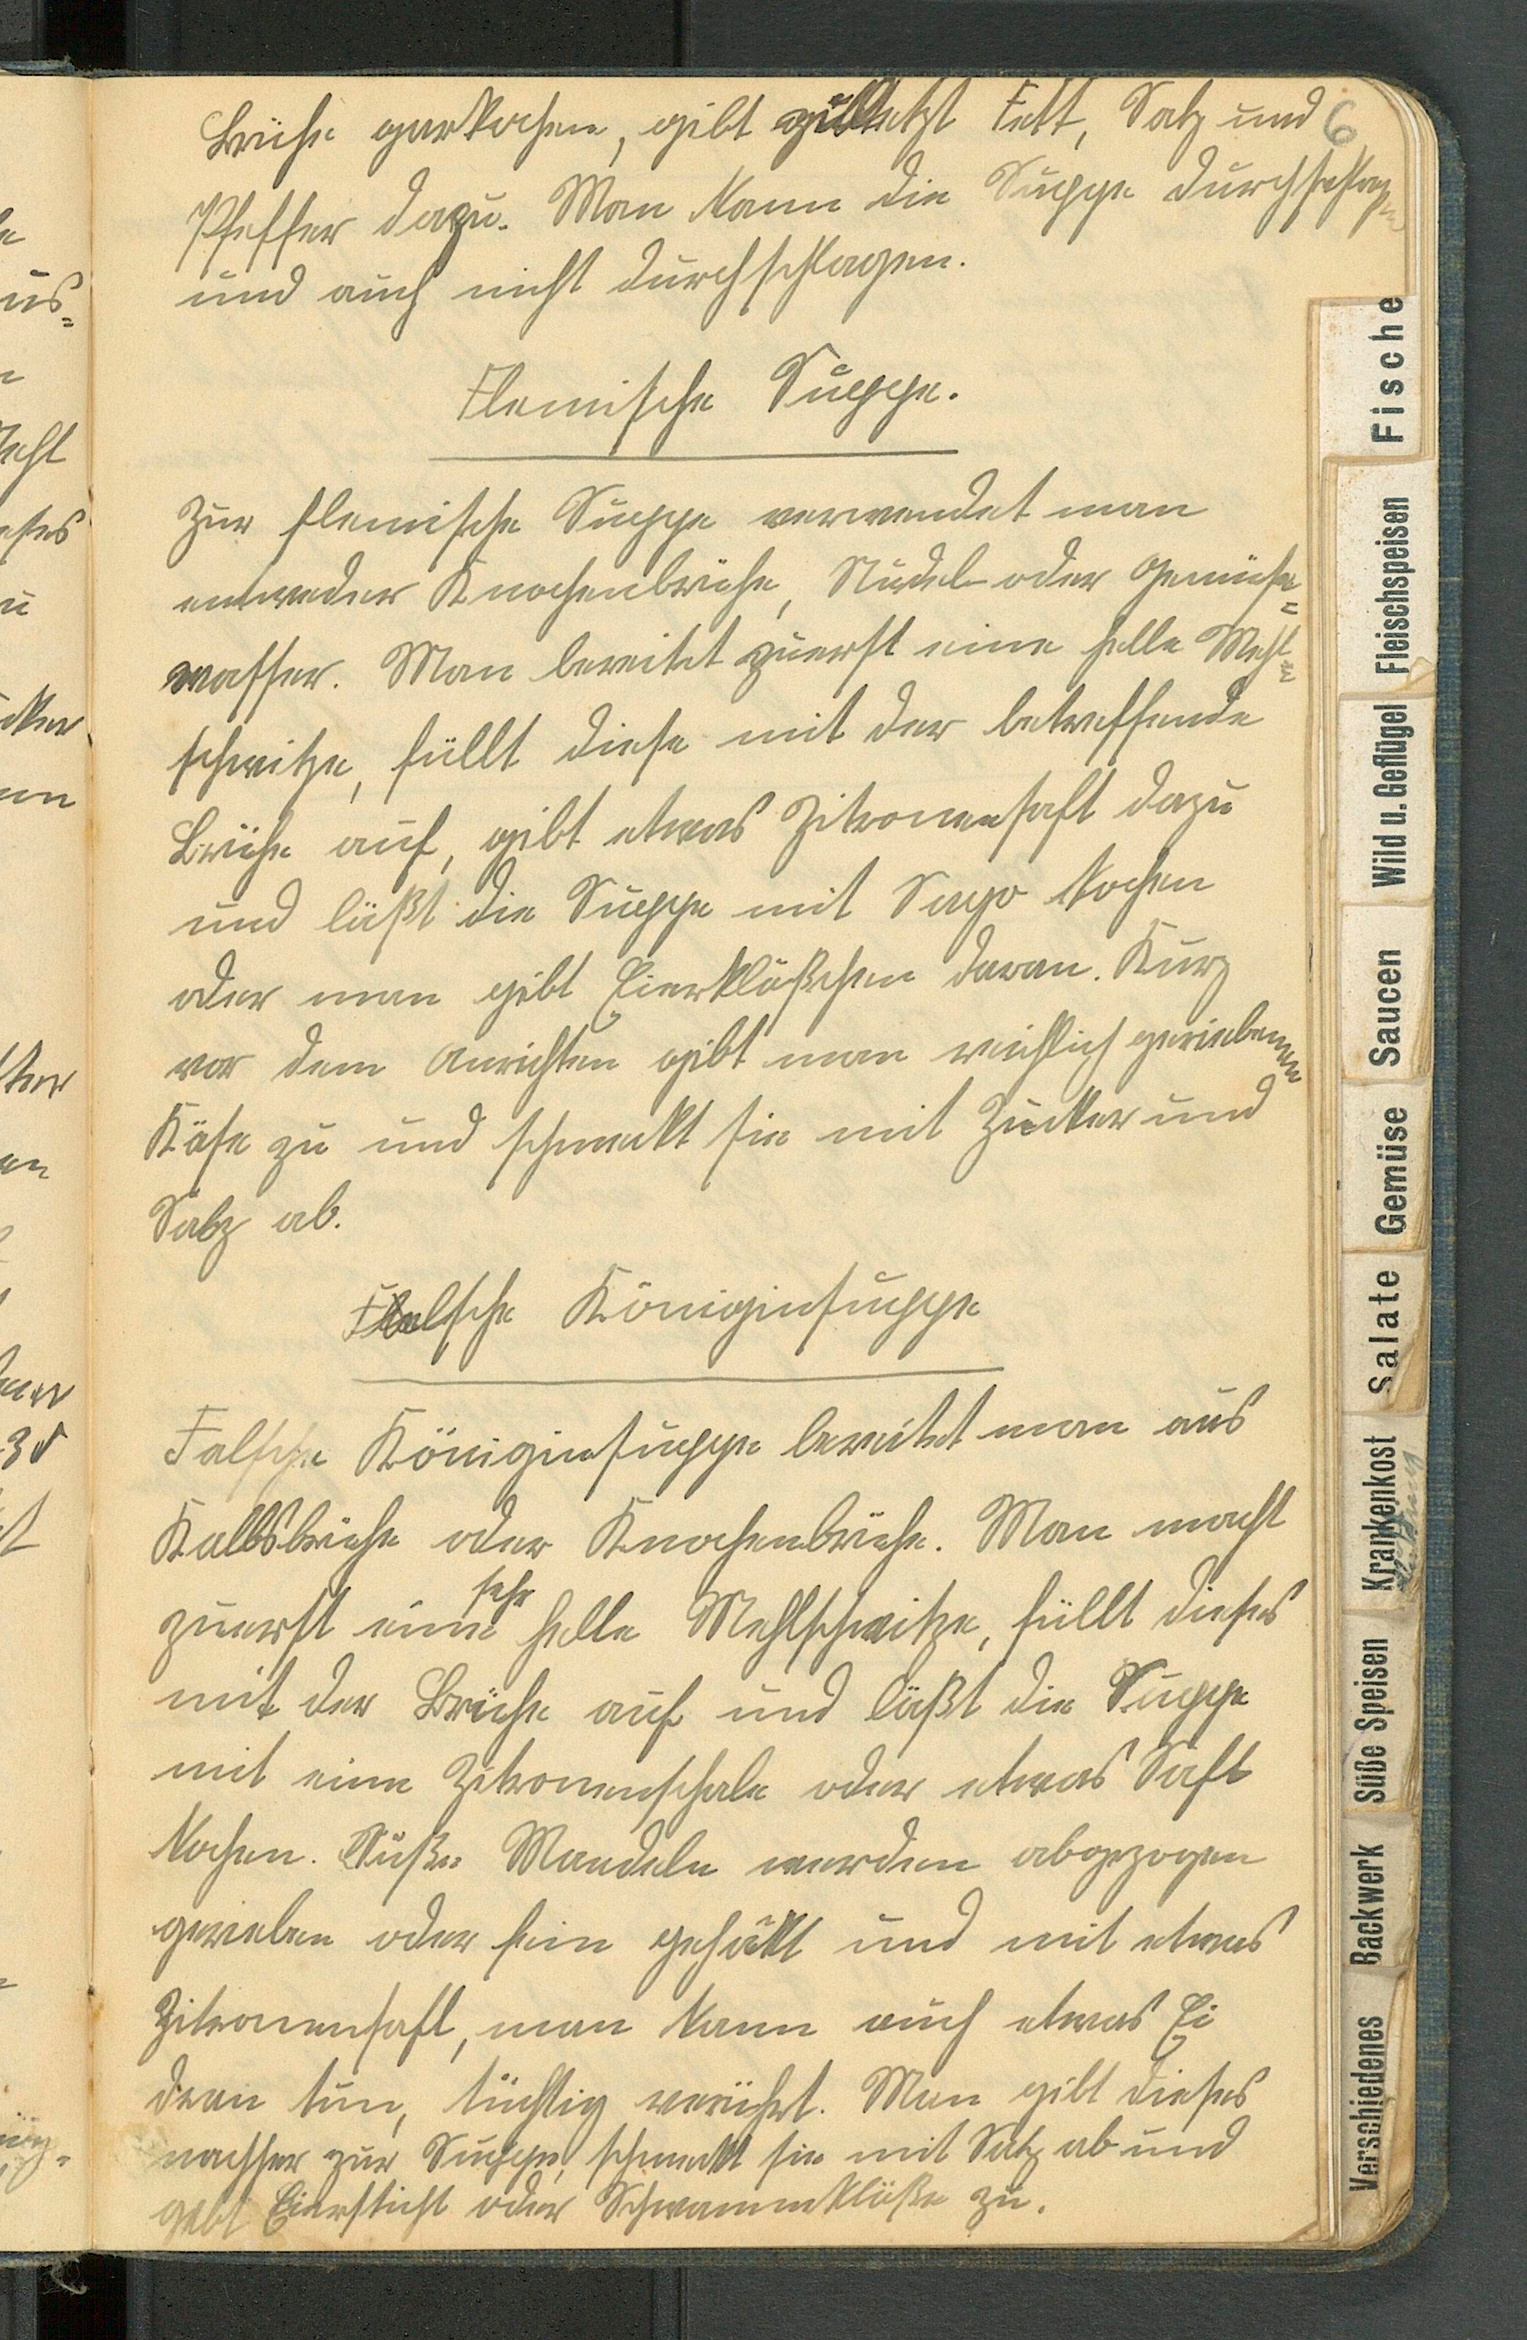 Brühe garkochen, gibt zuletzt Fett, Salz und 6
Pfeffer dazu. Man kann die Suppe durchschlagen
und auch nicht durchschlagen.
Flemische Suppe.
Zur flemische Suppe verwendet man
entweder Knochenbrühe, Nudel- oder Gemüse=
wasser. Man bereitet zuerst eine helle Mehl=
schwitze, füllt diese mit der betreffende
Brühe auf, gibt etwas Zitronensaft dazu
und läßt die Suppe mit Sago kochen
oder man gibt Eierklößchen daran. Kurz
vor dem Anrichten gibt man reichlich geriebenen
Käse zu und schmeckt sie mit Zucker und
Salz ab.
Falsche Königinsuppe
Falsche Königinsuppe bereitet man aus
Kalbsbrühe oder Knochenbrühe. Man macht
zuerst eine sehr helle Mehlschwitze, füllt dieses
mit der Brühe auf und läßt die Suppe
mit eine Zitronenschale oder etwas Saft
kochen. Süße Mandeln werden abgezogen
gerieben oder fein gehäkt und mit etwas
Zitronensaft, man kann auch etwas Ei
dran tun, tüchtig verührt. Man gibt dieses
nachher zur Suppe, schmekt sie mit Salz ab und
gebt Eierstich oder Schwammklöße zu.
Fische
Fleischspeisen
Wild u. Geflügel
Saucen
Gemüse
Salate
Krankenkost
Süße Speisen
Backwerk
Verschiedenes